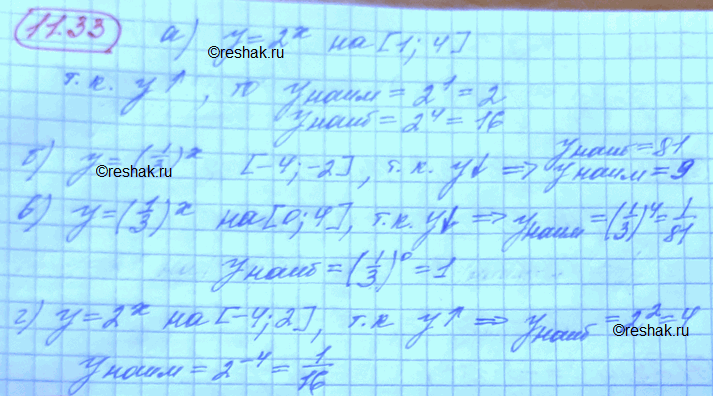 11.33 а) y = 2^x на [1; 4]
©reshak.ru
т.к. y↑, то y наим = 2^1 = 2
y наиб = 2^4 = 16
б) y = (1/3)^x [-4; -2], т.к. y↓ ⇒ y наиб = 81
y наим = 9
©reshak.ru
в) y = (1/3)^x на [0; 4], т.к. y↓ ⇒ y наим = (1/3)^4 = 1/81
y наиб = (1/3)^0 = 1
г) y = 2^x на [-4; 2], т.к y↑ ⇒ y наиб = 2^2 = 4
©reshak.ru
y наим = 2^-4 = 1/16